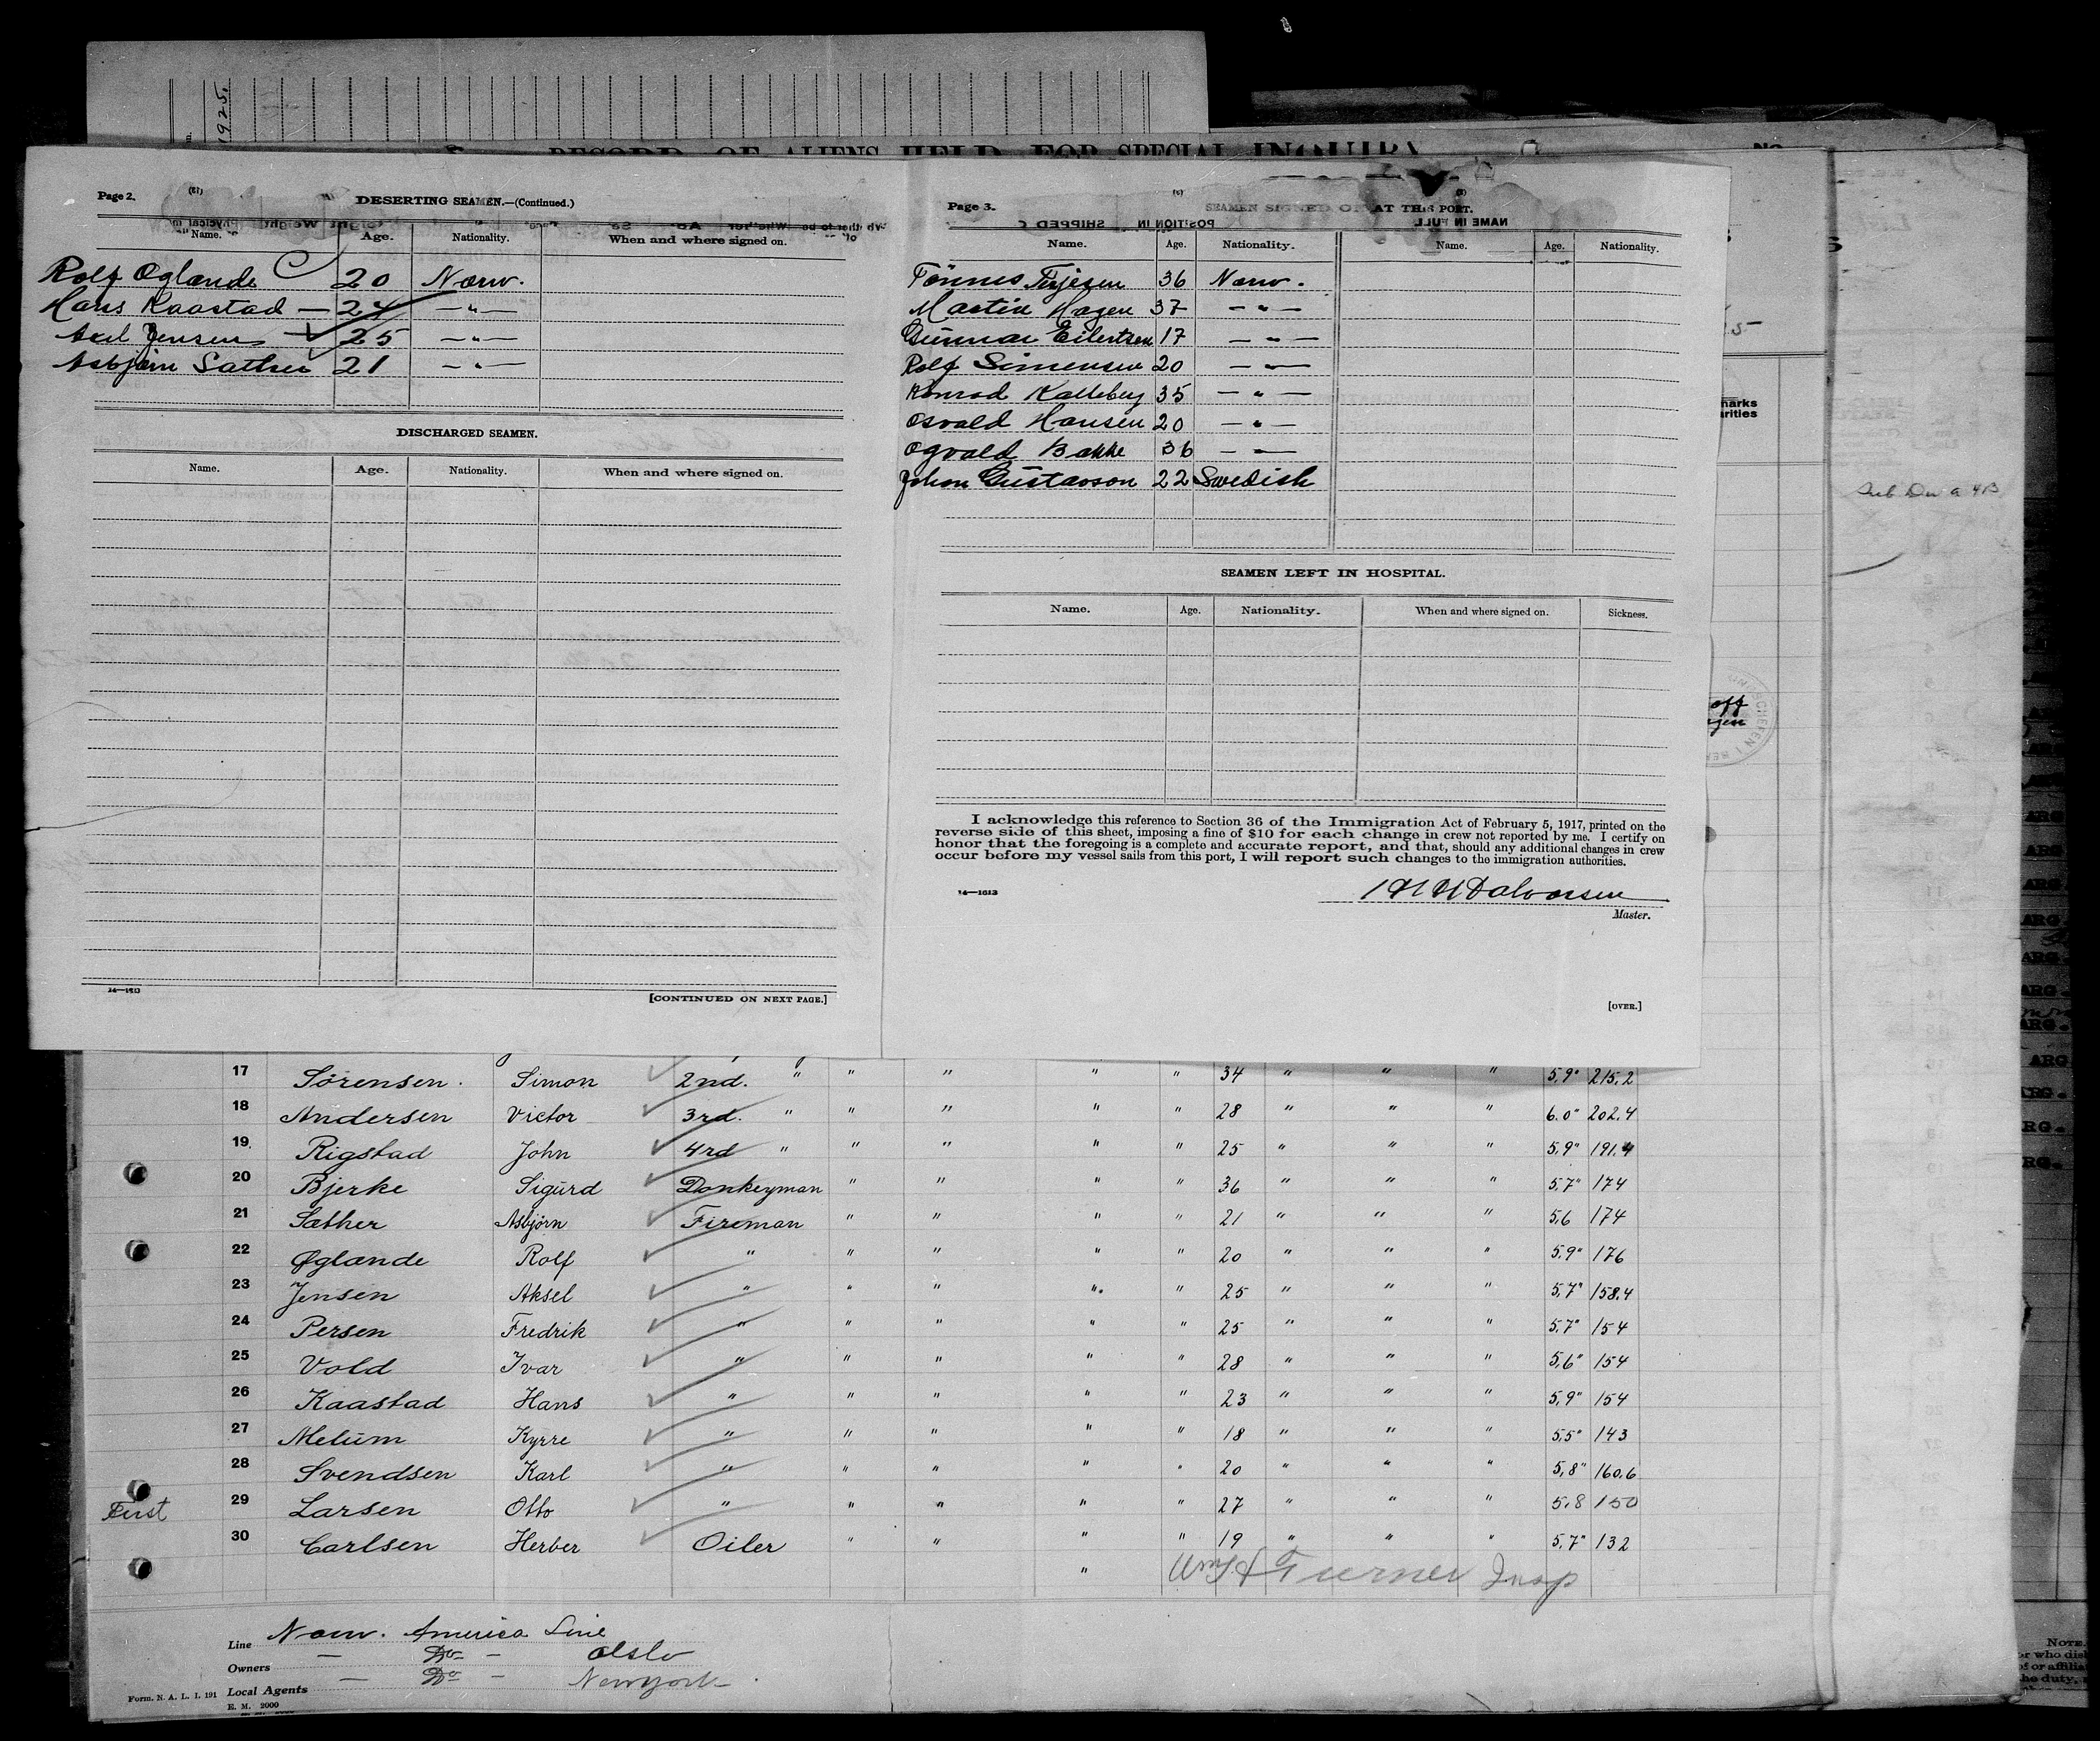 1925.
RECORD OF ALIENS HELD FOR SPECIAL INQUIRY
No
Page 2.
DESERTING SEAMEN.—(Continued.)
Name. Age. Nationality. When and where signed on.
Rolf Oglande 20 Norw.
Hans Kaastad — 24 — " —
Axel Jensen — 25 — " —
Asbjørn Sather 21 — " —
DISCHARGED SEAMEN.
Name. Age. Nationality. When and where signed on.
14—1613
[CONTINUED ON NEXT PAGE.]
Page 3.
SEAMEN SIGNED ON AT THIS PORT.
NAME IN FULL
POSITION IN
SHIPPED
Name. Age. Nationality. Name. Age. Nationality.
Tönnes Terjesen 36 Norw.
Martin Hagen 37 — " —
Gunnar Eilertsen 17 — " —
Rolf Simensen 20 — " —
Konrad Kalleberg 35 — " —
Osvald Hansen 20 — " —
Ogvald Bakke 36 — " —
Johan Gustavson 22 Swedish
SEAMEN LEFT IN HOSPITAL.
Name. Age. Nationality. When and where signed on. Sickness.
I acknowledge this reference to Section 36 of the Immigration Act of February 5, 1917, printed on the
reverse side of this sheet, imposing a fine of $10 for each change in crew not reported by me. I certify on
honor that the foregoing is a complete and accurate report, and that, should any additional changes in crew
occur before my vessel sails from this port, I will report such changes to the immigration authorities.
14—1613
Master.
[OVER.]
17 Sörensen. Simon 2nd. " " " " " 34 " " " 5,9" 215,2
18 Andersen Victor 3rd. " " " " " 28 " " " 6.0" 202.4
19 Rigstad John 4rd " " " " " 25 " " " 5,9" 191.4
20 Bjerke Sigurd Donkeyman " " " " 36 " " " 5.7" 174
21 Sæther Asbjørn Fireman " " " " 21 " " " 5,6 174
22 Øglande Rolf " " " " " 20 " " " 5.9" 176
23 Jensen Aksel " " " " " 25 " " " 5,7" 158.4
24 Persen Fredrik " " " " " 25 " " " 5.7" 154
25 Vold Ivar " " " " " 28 " " " 5,6" 154
26 Kaastad Hans " " " " " 23 " " " 5,9" 154
27 Melum Kyrre " " " " " 18 " " " 5,5" 143
28 Svendsen Karl " " " " " 20 " " " 5,8" 160.6
First 29 Larsen Otto " " " " " 27 " " " 5,8 150
30 Carlsen Herber Oiler " " " " 19 " " " 5.7" 132
" Turner Insp
Line Norw. America Line
Owners — Do — Oslo
Local Agents — Do — New York
Form. N. A. L. I. 191
E. M. 2000